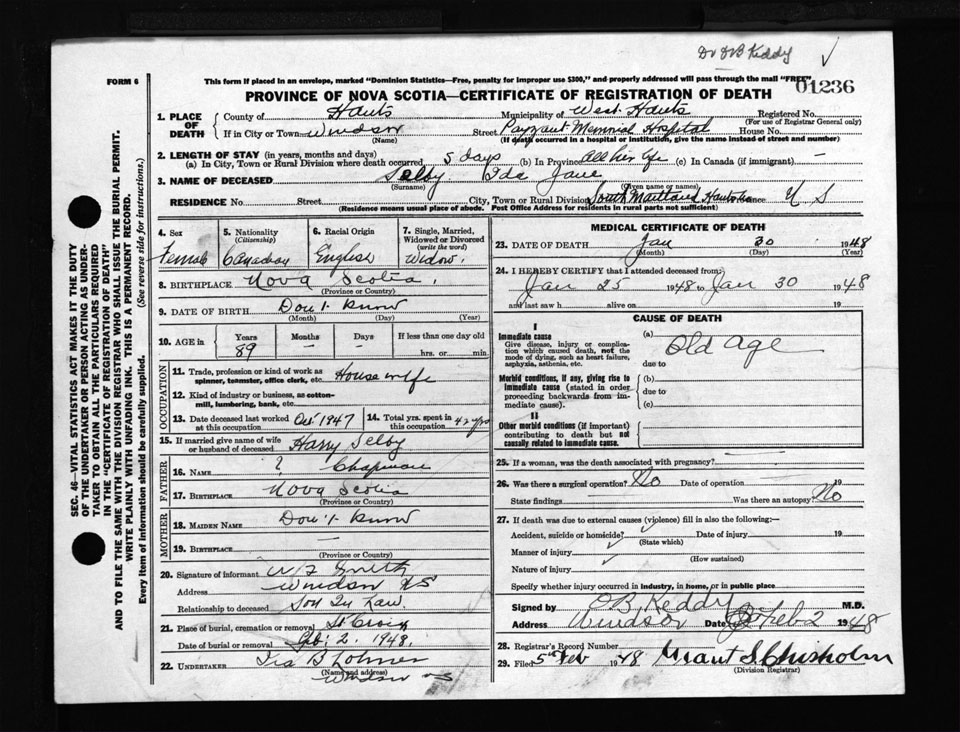 Dr OB Keddy
FORM 6
This form if placed in an envelope, marked "Dominion Statistics—Free, penalty for improper use $300," and properly addressed will pass through the mail "FREE"
01236
PROVINCE OF NOVA SCOTIA—CERTIFICATE OF REGISTRATION OF DEATH
1. PLACE OF DEATH
County of Hants Municipality of West Hants Registered No.
(For use of Registrar General only)
If in City or Town Windsor Street Payzant Memorial Hospital House No.
(Name) (If death occurred in a hospital or institution, give the name instead of street and number)
2. LENGTH OF STAY (in years, months and days)
(a) In City, Town or Rural Division where death occurred 5 days (b) In Province All her life (c) In Canada (if immigrant) —
3. NAME OF DECEASED Selby Ida Jane
(Surname) (Given name or names)
RESIDENCE No. Street City, Town or Rural Division South Maitland Hants Co N S
(Residence means usual place of abode. Post Office Address for residents in rural parts not sufficient)
4. Sex 5. Nationality (Citizenship) 6. Racial Origin 7. Single, Married, Widowed or Divorced (write the word)
Female Canadian English Widow.
8. BIRTHPLACE Nova Scotia
(Province or Country)
9. DATE OF BIRTH Don't Know
(Month) (Day) (Year)
10. AGE in Years Months Days If less than one day old
89 — — hrs. or min.
OCCUPATION
11. Trade, profession or kind of work as spinner, teamster, office clerk, etc. House wife
12. Kind of industry or business, as cotton-mill, lumbering, bank, etc.
13. Date deceased last worked at this occupation Oct 1947 14. Total yrs. spent in this occupation 42 yrs
15. If married give name of wife or husband of deceased Harry Selby
FATHER
16. Name ? Chapman
17. Birthplace Nova Scotia
(Province or Country)
MOTHER
18. MAIDEN NAME Don't Know
19. BIRTHPLACE —
(Province or Country)
20. Signature of informant Smith
Address Windsor NS
Relationship to deceased Son In Law.
21. Place of burial, cremation or removal St Croix
Date of burial or removal Feb. 2, 1948.
22. UNDERTAKER Ira B Lohnes
(Name and address)
Windsor NS
MEDICAL CERTIFICATE OF DEATH
23. DATE OF DEATH Jan 30 1948
(Month) (Day) (Year)
24. I HEREBY CERTIFY that I attended deceased from:
Jan 25 1948 to Jan 30 1948
and last saw h alive on 19
CAUSE OF DEATH
I
Immediate cause
Give disease, injury or complication which caused death, not the mode of dying, such as heart failure, asphyxia, asthenia, etc.
(a) Old Age
due to
Morbid conditions, if any, giving rise to immediate cause (stated in order proceeding backwards from immediate cause).
(b)
due to
(c)
II
Other morbid conditions (if important) contributing to death but not causally related to immediate cause.
25. If a woman, was the death associated with pregnancy?
26. Was there a surgical operation? No Date of operation 19
State findings Was there an autopsy? No
27. If death was due to external causes (violence) fill in also the following:—
Accident, suicide or homicide? Date of injury 19
(State which)
Manner of injury
(How sustained)
Nature of injury
Specify whether injury occurred in industry, in home, or in public place
Signed by OB Keddy M.D.
Address Windsor Date Feb 2 1948
28. Registrar's Record Number
29. Filed 5th Feb 1948 Grant S. Chisholm
(Division Registrar)
SEC. 46—VITAL STATISTICS ACT MAKES IT THE DUTY
OF THE UNDERTAKER OR PERSON ACTING AS UNDER-
TAKER TO OBTAIN ALL THE PARTICULARS REQUIRED
IN THE "CERTIFICATE OF REGISTRATION OF DEATH"
AND TO FILE THE SAME WITH THE DIVISION REGISTRAR WHO SHALL ISSUE THE BURIAL PERMIT.
WRITE PLAINLY WITH UNFADING INK. THIS IS A PERMANENT RECORD.
Every item of information should be carefully supplied. (See reverse side for instructions.)